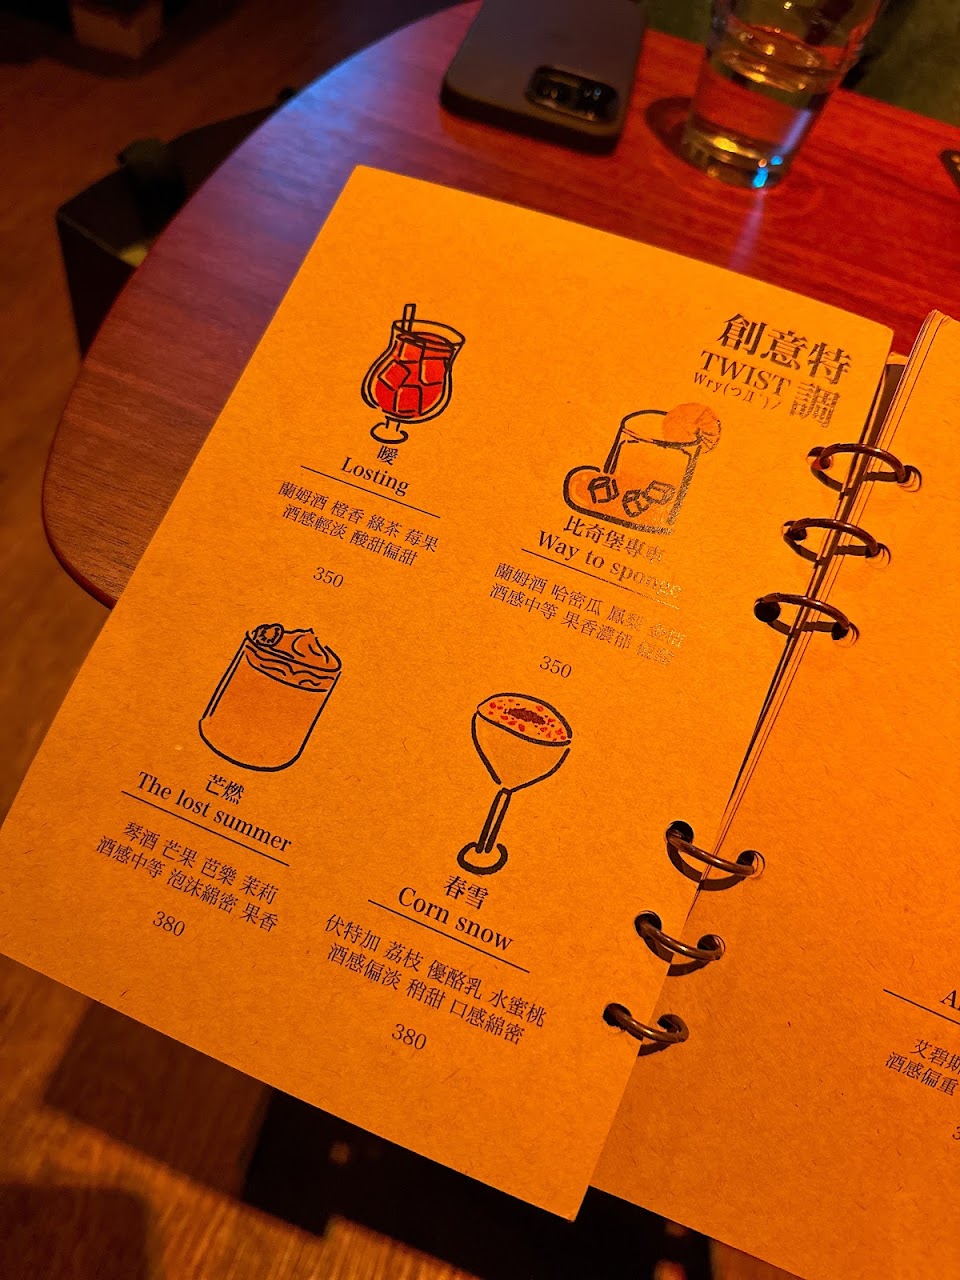 創意特
調
TWIST
Wry(つД`)ﾉ
曖
Losting
蘭姆酒 橙香 綠茶 莓果
酒感輕淡 酸甜偏甜
350
比奇堡專車
Way to sponge
蘭姆酒 哈密瓜 鳳梨 金桔
酒感中等 果香濃郁
350
芒燃
The lost summer
琴酒 芒果 芭樂 茉莉
酒感中等 泡沫綿密 果香
380
春雪
Corn snow
伏特加 荔枝 優酪乳 水蜜桃
酒感偏淡 稍甜 口感綿密
380
艾碧斯
酒感偏重